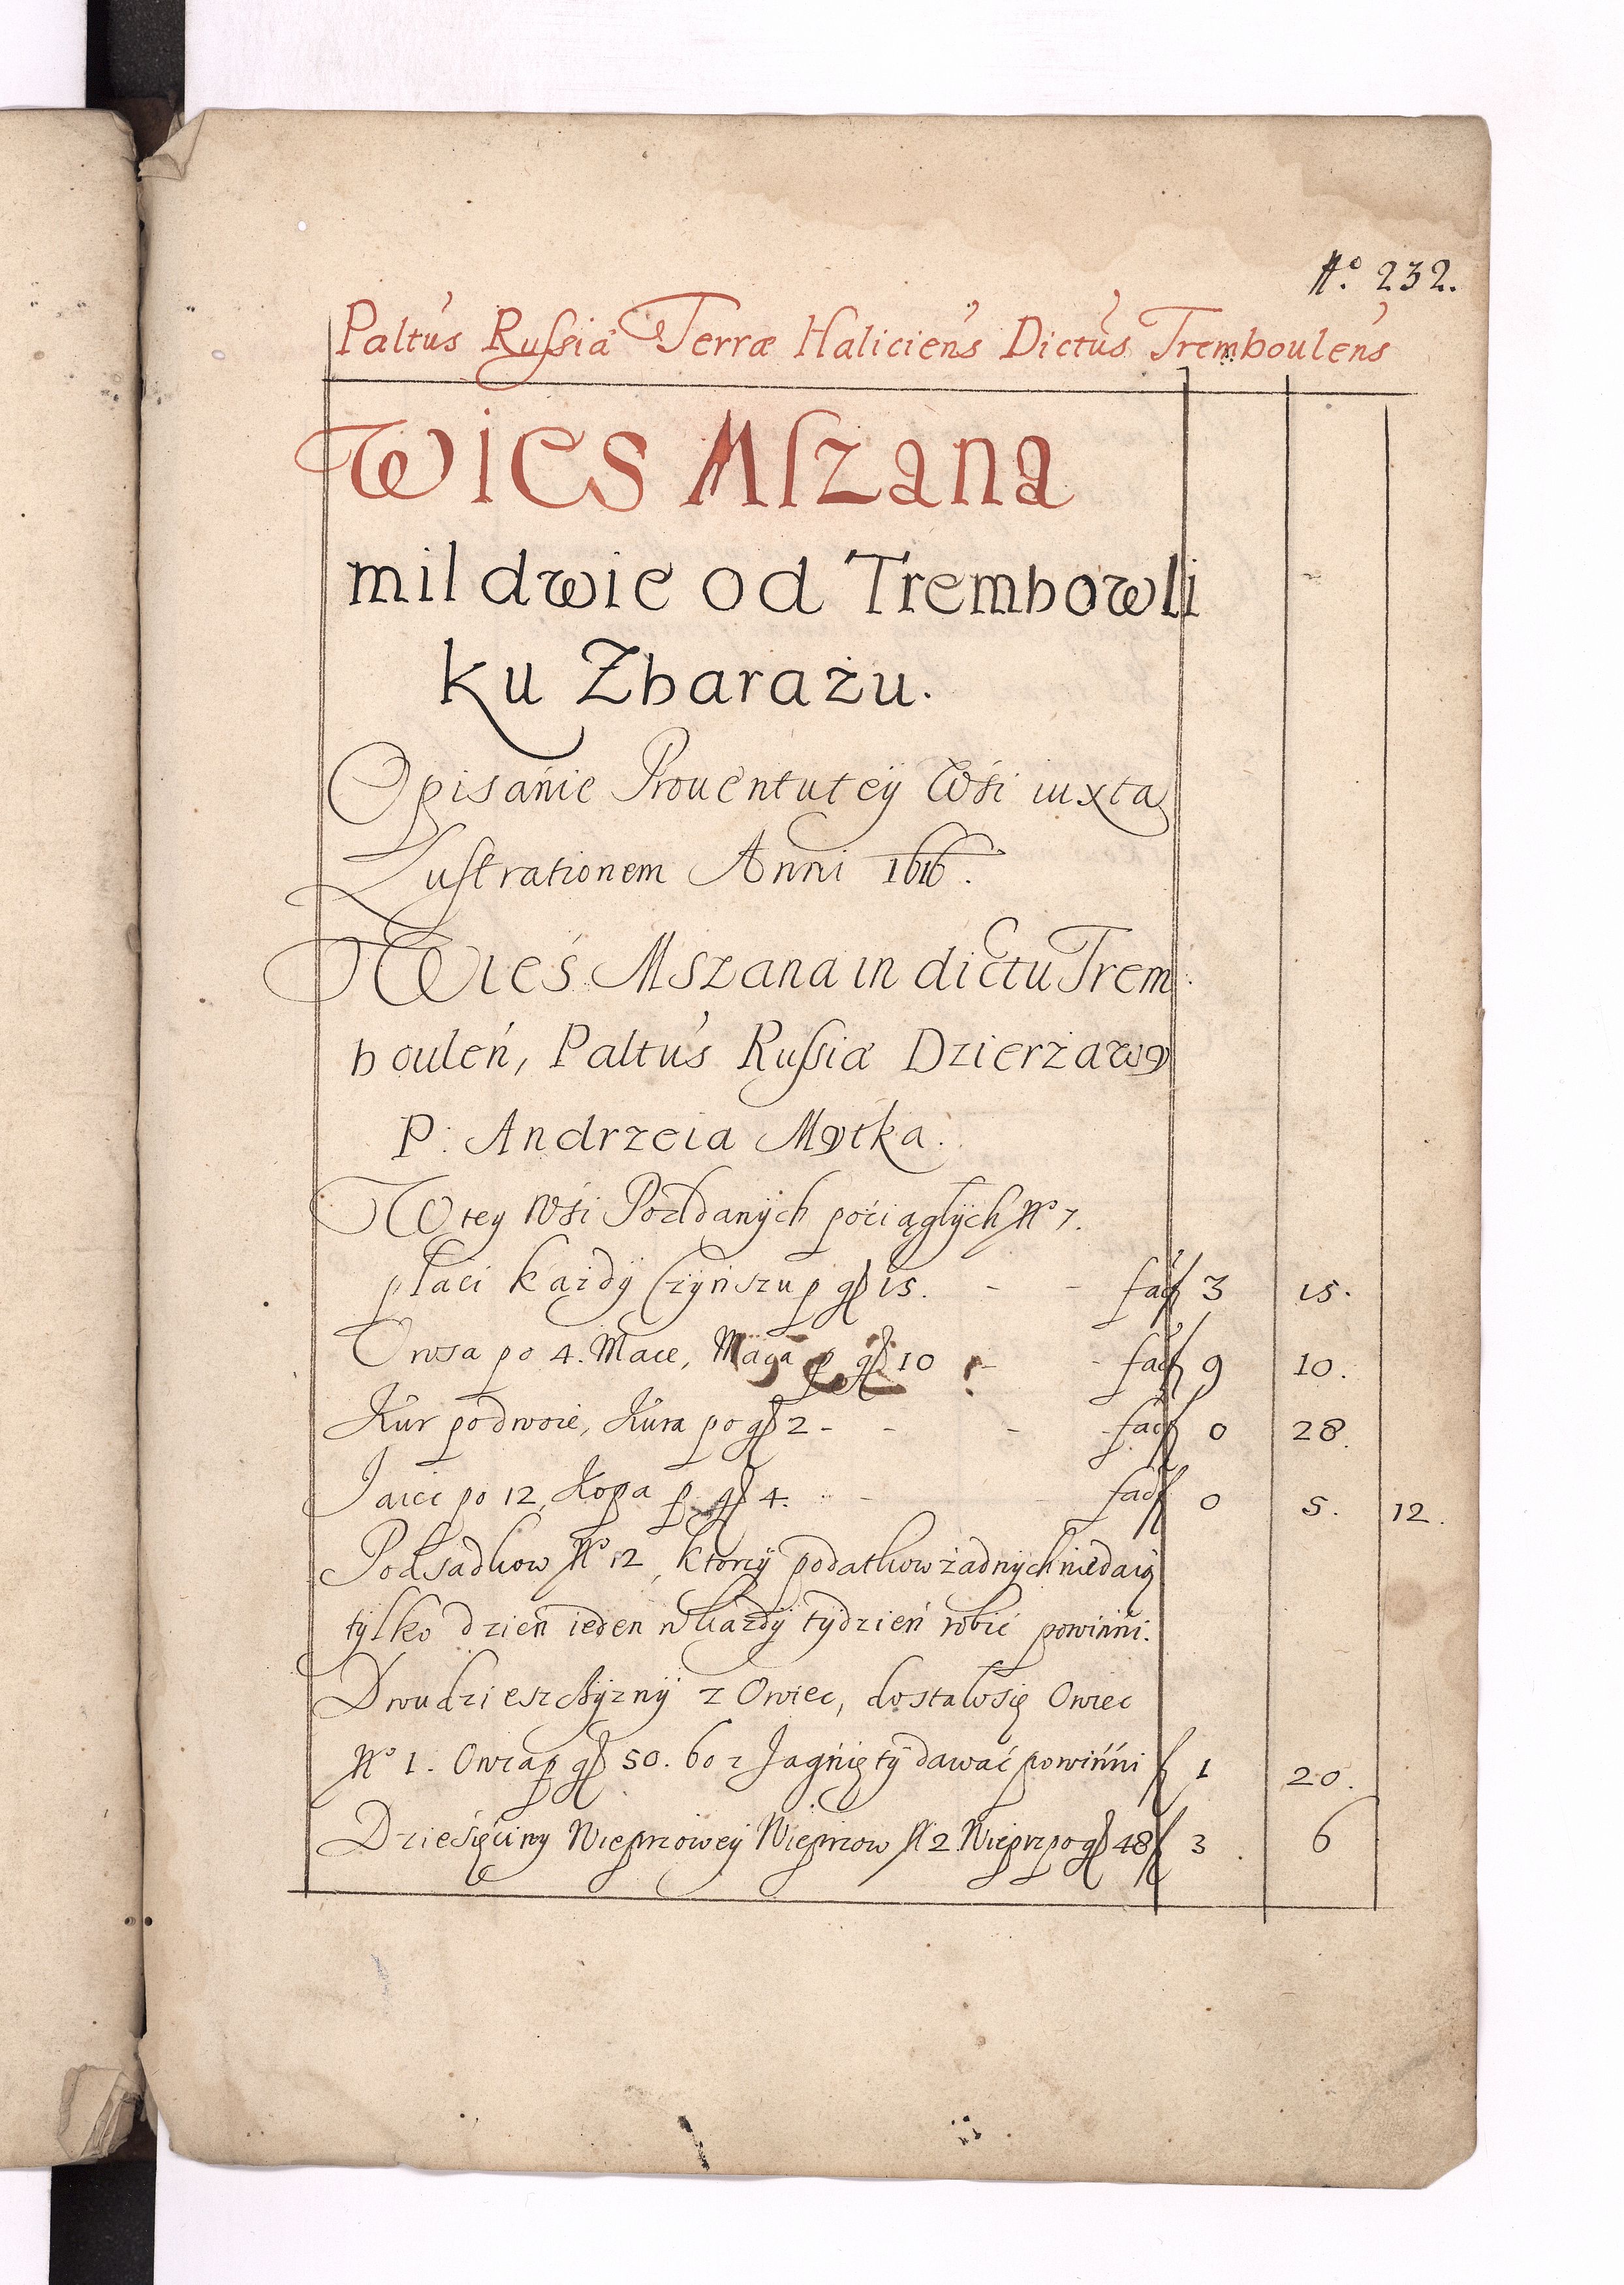 No. 232.
Paltus Russiæ Terræ Haliciens Dictus Tremboulens
Wies Mszana
mil dwie od Trembowli
ku Zbarażu.
Opisanie Prouentu tey Wśi iuxta
Lustrationem Anni 1616.
Wieś Mszana in dictu Trem
bouleń, Paltus Russiæ Dzierżawy
P. Andrzeia Mytka.
W tey Wśi Poddanych pociągłych No 7.
płaci każdy Czynszu p gr 15. - - fac f 3 15.
Owsa po 4. Mace, Maca p gr 10 - - fac f 9 10.
Kur po dwoie, Kura po gr 2 - - - fac f 0 28.
Jaiec po 12, Kopa p gr 4. - fac f 0 5. 12.
Podsadkow No 12, ktorzy podatkow żadnych niedaią
tylko dzień ieden w każdy tydzień robić powinni.
Dwudziestyzny z Owiec, dostało się Owiec
No 1. Owca p gr 50. bo z Jagnięty dawać powinni f 1 20.
Dziesięciny Wieprzowey Wieprzow No 2 Wieprz po gr 48 f 3. 6